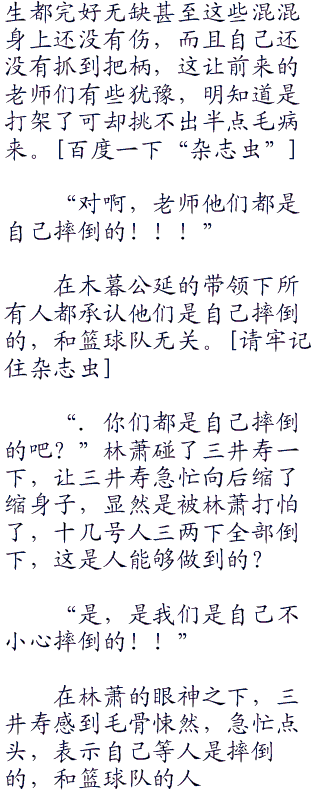 生都完好无缺甚至这些混混
身上还没有伤，而且自己还
没有抓到把柄，这让前来的
老师们有些犹豫，明知道是
打架了可却挑不出半点毛病
来。[百度一下“杂志虫”]
“对啊，老师他们都是
自己摔倒的！！！”
在木暮公延的带领下所
有人都承认他们是自己摔倒
的，和篮球队无关。[请牢记
住杂志虫]
“．你们都是自己摔倒
的吧？”林萧碰了三井寿一
下，让三井寿急忙向后缩了
缩身子，显然是被林萧打怕
了，十几号人三两下全部倒
下，这是人能够做到的？
“是，是我们是自己不
小心摔倒的！！”
在林萧的眼神之下，三
井寿感到毛骨悚然，急忙点
头，表示自己等人是摔倒
的，和篮球队的人